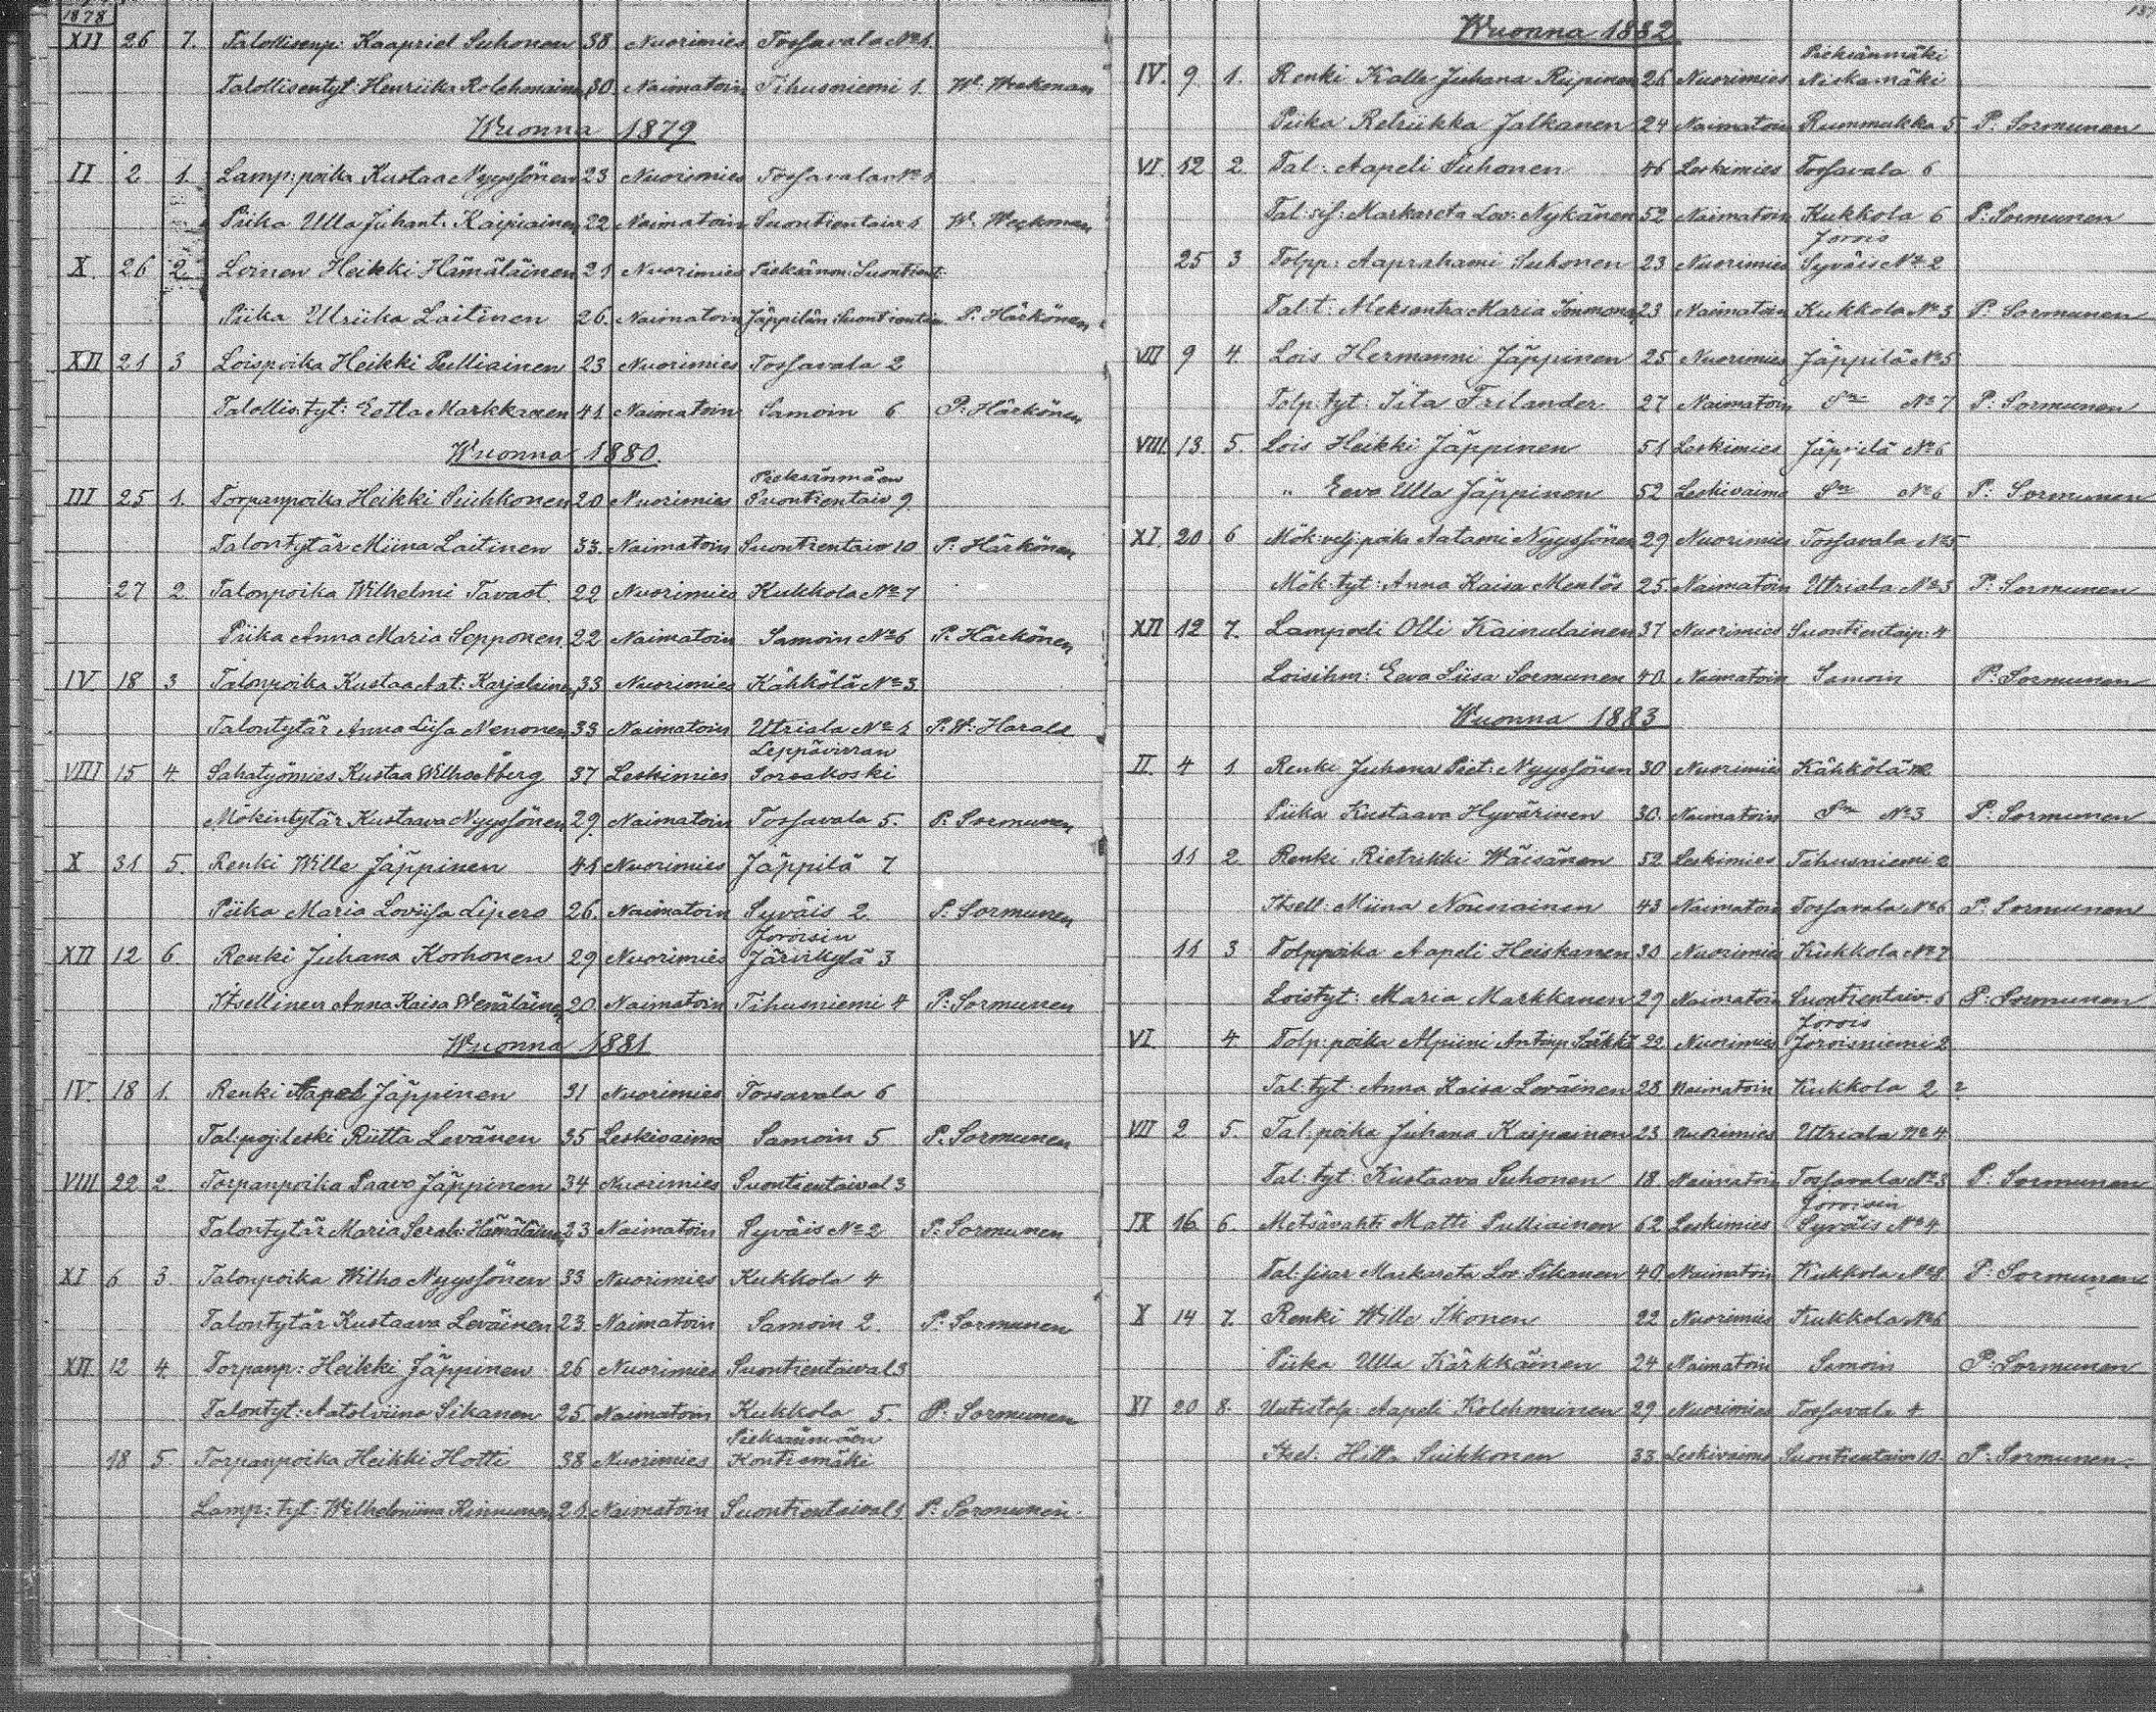 1878
XII 26 7. Talollisenp: Kaapriel Suhonen 38 Nuorimies Tossavala No 1.
Talollisentyt: Henriika Kolehmainen 30 Naimatoin Tihusniemi 1. W: Weckman
Wuonna 1879
II 2 1. Lamp:poika Kustaa Nyyssönen 23 Nuorimies Tossavala No 1
Piika Ulla Juhant. Kaipiainen 22 Naimatoin Suontientaiw 1 W. Weckman
X. 26 2. Loinen Heikki Hämäläinen 21 Nuorimies Pieksänm: Suontient:
Piika Ulriika Laitinen 26. Naimatoin Jäppilän Suontientai P. Härkönen
XII 21 3 Loispoika Heikki Pulliainen 23 Nuorimies Tossavala 2
Tallollis:tyt: Eetla Markkanen 41 Naimatoin Samoin 6 P. Härkönen
Wuonna 1880.
Pieksänmäen
III 25 1. Torpanpoika Heikki Suhkonen 20 Nuorimies Suontientaiv 9.
Talontytär Miina Laitinen 33. Naimatoin Suontientaiv 10 P: Härkönen
27 2 Talonpoika Wilhelmi Tavast. 22 Nuorimies Kukkola No 7
Piika Anna Maria Sepponen. 22 Naimatoin Samoin No 6 P. Härkönen
IV. 18 3 Talonpoika Kustaa Aat: Karjalainen 33 Nuorimies Kähkölä No 3
Talontytär Anna Liisa Nenonen 33 Naimatoin Utriala No 1 P. W: Harald
Leppävirran
VIII 15 4. Sahatyömies Kustaa Wilh: Åberg 37 Leskimies Sorsakoski
Mökintytär Kustaava Nyyssönen 29. Naimatoin Tossavala 5. P. Sormunen
X 31 5. Renki Wille Jäppinen 41 Nuorimies Jäppilä 7
Piika Maria Loviisa Lipero 26. Naimatoin Syväis 2. P. Sormunen
Joroisin
XII 12 6. Renki Juhana Korhonen 29 Nuorimies Järvikylä 3
Itsellinen Anna Kaisa Wenäläinen 20. Naimatoin Tihusniemi 4 P: Sormunen
Wuonna 1881
IV. 18 1. Renki Aapel Jäppinen 31 Nuorimies Tossavala 6
Tal:poj:leski Riitta Levänen 35 Leskivaimo Samoin 5 P. Sormunen
VIII 22 2. Torpanpoika Paavo Jäppinen 34 Nuorimies Suontientaival 3
Talontytär Maria Serah: Hämäläinen 23 Naimatoin Syväis No 2 P: Sormunen
XI 6 3. Talonpoika Wilho Nyyssönen 33 Nuorimies Kukkola 4
Talontytär Kustaava Leväinen 23. Naimatoin Samoin 2. P. Sormunen
XII. 12 4. Torpanp: Heikki Jäppinen 26 Nuorimies Suontientaival 3
Talontyt: Aatolviina Sikanen 25 Naimatoin Kukkola 5. P. Sormunen
Pieksänmäen
18 5. Torpanpoika Heikki Hotti 38 Nuorimies Kontiomäki
Lamp: tyt: Wilhelmiina Kinnunen 21. Naimatoin Suontientaival 1 P: Sormunen.
Wuonna 1882
Pieksänmäki
IV. 9 1. Renki Kalle Juhana Riipinen 26 Nuorimies Niskamäki
Piika Retriikka Jalkanen 24 Naimatoin Rummukka 5 P: Sormunen
VI. 12 2. Tal: Aapeli Suhonen 46 Leskimies Tossavala 6
Tal:sis: Markareta Lov: Nykänen 52 Naimatoin Kukkola 6 P: Sormunen
Jorois
25 3 Tolpp: Aaprahami Suhonen 23 Nuorimies Syväis No 2
Tal:t: Aleksantra Maria Immonen 23 Naimatoin Kukkola No 3 P. Sormunen
VII 9 4. Lois Hermanni Jäppinen 25 Nuorimies Jäppilä No 5
Tolp:tyt: Iita Frilander 27 Naimatoin Sm No 7 P: Sormunen
VIII. 13. 5. Lois Heikki Jäppinen 51 Leskimies Jäppilä No 6
" Eeva Ulla Jäppinen 52 Leskivaimo Sm No 6 P: Sormunen
XI. 20 6 Mök:velj:poika Aatami Nyyssönen 29 Nuorimies Tossavala No 5
Mök:tyt: Anna Kaisa Mentös 25 Naimatoin Utriala No 3 P: Sormunen
XII 12 7. Lampoeti Olli Kainulainen 37 Nuorimies Suontientaip: 4
Loisihm: Eeva Liisa Sormunen 40. Naimatoin Samoin P: Sormunen
Wuonna 1883
II. 4 1 Renki Juhana Peet: Nyyssönen 30 Nuorimies Kähkölä
Piika Kustaava Hyvärinen 30. Naimatoin Sm No 3 P: Sormunen
11 2 Renki Rietrikki Wäisänen 52 Leskimies Tihusniemi 2
Itsell: Miina Nousiainen 43 Naimatoin Tossavala No 6 P: Sormunen
11 3 Tolppoika Aapeli Heiskanen 30 Nuorimies Kukkola No 7
Loistyt: Maria Markkanen 29 Naimatoin Suontientaiv: 6 P: Sormunen
Jorois
VI 4 Tolp:poika Alpiini Särkkä 22 Nuorimies Joroisniemi 2
Tal:tyt: Anna Kaisa Leväinen 28 Naimatoin Kukkola 2 ?
VII 2 5. Tal:poika Juhana Kaipainen 23 Nuorimies Utriala No 4
Tal:tyt: Kustaava Suhonen 18 Naimatoin Tossavala No 3 P: Sormunen
Joroisin
IX 16. 6. Metsävahti Matti Pulliainen 62 Leskimies Syväis No 4.
Tal:sisar Markareta Lov Sikanen 40 Naimatoin Kukkola No 8 P: Sormunen
X 14 7. Renki Wille Ikonen 22 Nuorimies Kukkola No 6
Piika Ulla Kärkkäinen 24 Naimatoin Samoin P: Sormunen
XI 20 8. Uutistolp: Aapeli Kolehmainen 29 Nuorimies Tossavala 4.
Itsel: Hitta Suhkonen 33 Leskivaimo Suontientaiv 10. P: Sormunen.